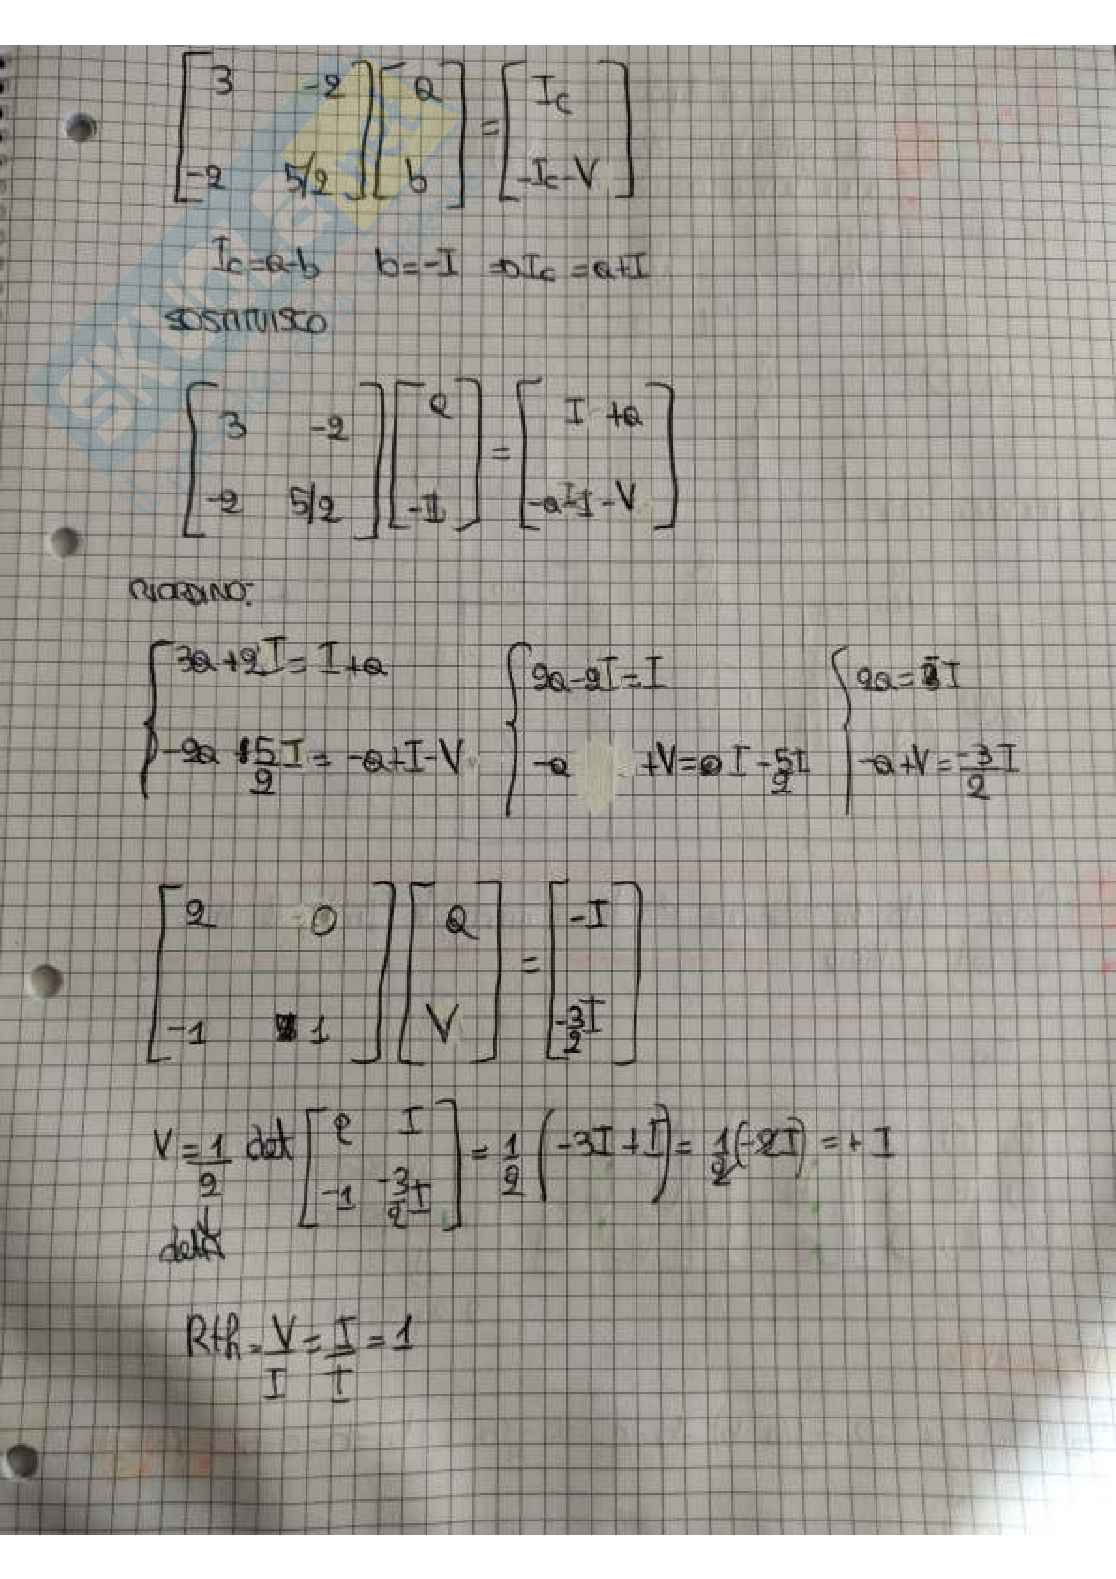 [3 -2; -2 5/2] [a; b] = [Ic; -Ic-V]
Ic = a-b b = -I => Ic = a+I
SOSTITUISCO
[3 -2; -2 5/2] [a; -I] = [I +a; -a-I-V]
RIORDINO:
{3a+2I = I+a {2a-2I = I {2a = I
-2a +5/2 I = -a+I-V -a +V = I - 5/2 I -a+V = -3/2 I
[2 0; -1 1] [a; V] = [-I; -3/2 I]
V = 1/2 det [2 I; -1 -3/2 I] = 1/2 (-3I+I) = 1/2 (-2I) = + I
delta
Rth = V/I = I/I = 1